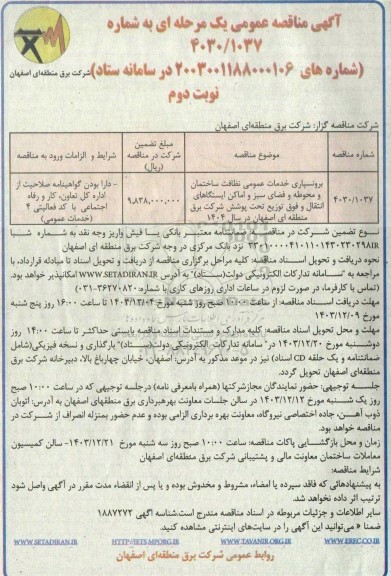 آگهی مناقصه عمومی یک مرحله ای به شماره
۴۰۳۰/۱۰۳۷
(شماره های ۲۰۰۳۰۰۱۱۸۸۰۰۰۱۰۶ در سامانه ستاد)
شرکت برق منطقه‌ای اصفهان
نوبت دوم
شرکت مناقصه گزار: شرکت برق منطقه‌ای اصفهان
شماره مناقصه
موضوع مناقصه
مبلغ تضمین شرکت در مناقصه (ریال)
شرایط و الزامات ورود به مناقصه
۴۰۳۰/۱۰۳۷
برونسپاری خدمات عمومی نظافت ساختمان
و محوطه و فضای سبز و اماکن ایستگاههای
انتقال و فوق توزیع تحت پوشش شرکت برق
منطقه ای اصفهان در سال ۱۴۰۴
۹,۸۳۸,۰۰۰,۰۰۰
- دارا بودن گواهینامه صلاحیت از
اداره کل تعاون، کار و رفاه
اجتماعی با کد فعالیتی ۴
(خدمات عمومی)
نوع تضمین شرکت در مناقصه: ضمانتنامه معتبر بانکی یا فیش واریز وجه نقد به شماره شبا
نزد بانک مرکزی در وجه شرکت برق منطقه ای اصفهان
نحوه دریافت و تحویل اسناد مناقصه: کلیه مراحل برگزاری مناقصه از دریافت و تحویل اسناد تا مبادله قرارداد، با
مراجعه به "سامانه تدارکات الکترونیکی دولت(ستاد)" به آدرس WWW.SETADIRAN.IR امکانپذیر خواهد بود.
(تماس با کارفرما، در صورت لزوم در ساعات اداری روزهای کاری با شماره: ۳۶۲۷۰۸۲۰-۰۳۱)
مهلت دریافت اسناد مناقصه: از ساعت ۱۰:۰۰ صبح روز شنبه مورخ ۱۴۰۳/۱۲/۰۴ تا ساعت ۱۶:۰۰ روز پنج شنبه
مورخ ۱۴۰۳/۱۲/۰۹
مهلت و محل تحویل اسناد مناقصه: کلیه مدارک و مستندات اسناد مناقصه بایستی حداکثر تا ساعت ۱۴:۰۰ روز
دوشنبه مورخ ۱۴۰۳/۱۲/۲۰ در" سامانه تدارکات الکترونیکی دولت(ستاد)" بارگذاری و نسخه فیزیکی(شامل
ضمانتنامه و یک حلقه CD اسناد) نیز در موعد مذکور به آدرس: اصفهان، خیابان چهارباغ بالا، دبیرخانه شرکت برق
منطقه‌ای اصفهان تحویل گردد.
جلسه توجیهی: حضور نمایندگان مجازشرکتها (همراه بامعرفی نامه) درجلسه توجیهی که در ساعت ۱۰:۰۰ صبح
روز یک شنبه مورخ ۱۴۰۳/۱۲/۱۲ در سالن جلسات معاونت بهره‌برداری برق منطقه‌ای اصفهان به آدرس: اتوبان
ذوب آهن، جاده اختصاصی نیروگاه، معاونت بهره برداری الزامی بوده و عدم حضور بمنزله انصراف از شرکت در
مناقصه خواهد بود.
زمان و محل بازگشایی پاکات مناقصه: ساعت ۱۰:۰۰ صبح روز سه شنبه مورخ ۱۴۰۳/۱۲/۲۱- سالن کمیسیون
معاملات ساختمان معاونت مالی و پشتیبانی شرکت برق منطقه‌ای اصفهان
شرایط مناقصه:
به پیشنهادهائی که فاقد سپرده یا امضاء مشروط و مخدوش بوده و یا پس از انقضاء مدت مقرر در آگهی واصل شود
ترتیب اثر داده نخواهد شد.
سایر اطلاعات و جزئیات مربوطه در اسناد مناقصه مندرج است.شناسه اگهی ۱۸۸۷۲۷۲
ضمناً « می‌توانید این آگهی را در سایت‌های اینترنتی مشاهده کنید.
WWW.SETADIRAN.IR HTTP://IETS.MPORG.IR WWW.TAVANIR.ORG.IR WWW.EREC.CO.IR
روابط عمومی شرکت برق منطقه‌ای اصفهان